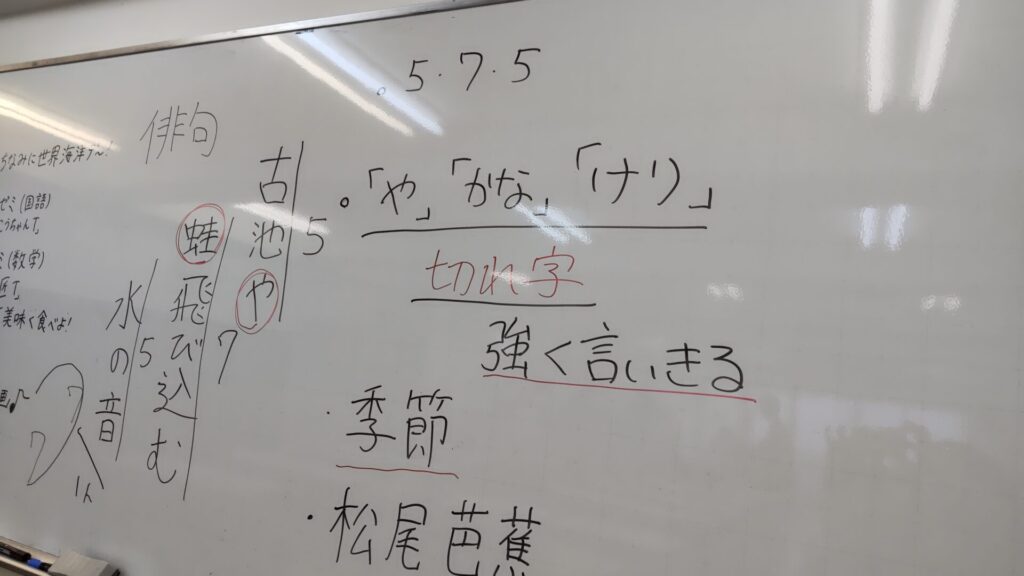 5・7・5
俳句
「や」「かな」「けり」
切れ字
強く言いきる
季節
松尾芭蕉
古池や
5
蛙飛び込む
7
水の音
5
ちなみに世界海洋デー!
ゼミ(国語)
こうちゃんT
ミ(数学)
匠T
美味く食べよ!